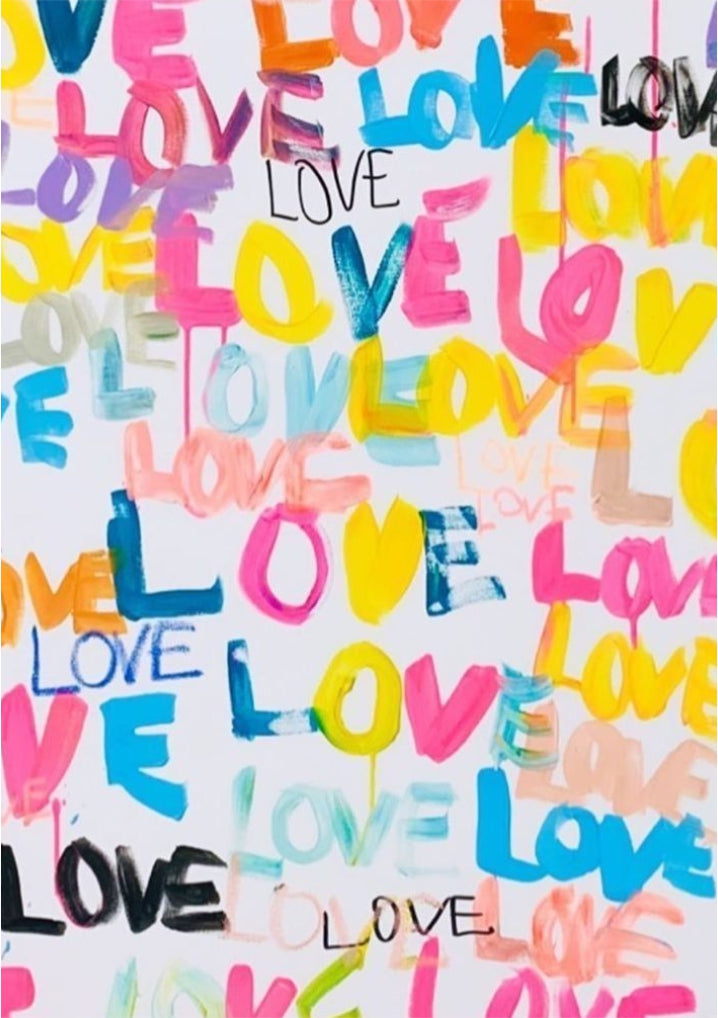 VE LOVE
LOVE LOVE LOV
LOVE LOVE LOV
OVE LOVE LOV
LOVE LOVE LOVE
E LOVE LOVE LO
LOVE
LOVE LOV
OVE
LOVE LOVE
LOVE
VE LOVE
LOVE LOVE
LOVE LOVE LOVE
LOVE
LOVE LOVE